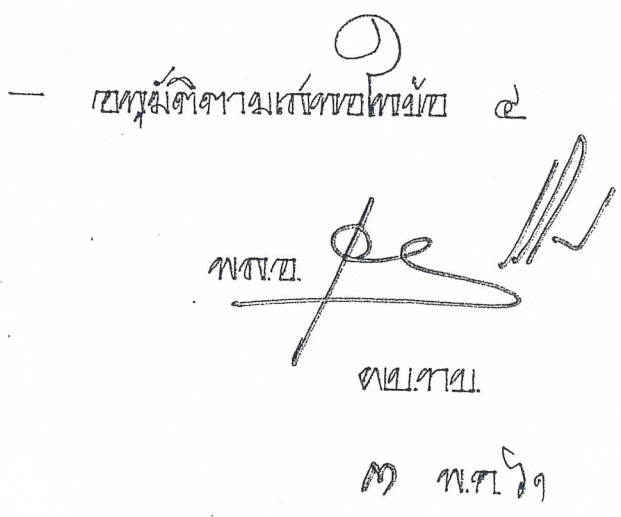 — อนุมัติตามเสนอในข้อ ๔
พล.อ.
ผบ.ทบ.
๓ พ.ค. ๖๑